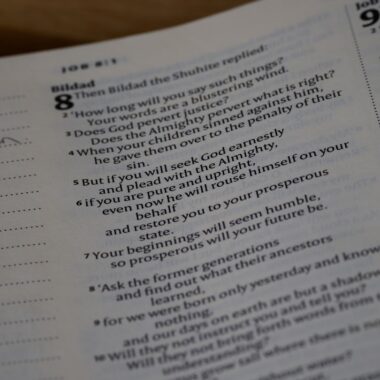 JOB 8:1
Bildad
8 Then Bildad the Shuhite replied:
2 'How long will you say such things?
Your words are a blustering wind.
3 Does God pervert justice?
Does the Almighty pervert what is right?
4 When your children sinned against him,
he gave them over to the penalty of their
sin.
5 But if you will seek God earnestly
and plead with the Almighty,
6 if you are pure and upright,
even now he will rouse himself on your
behalf
and restore you to your prosperous
state.
7 Your beginnings will seem humble,
so prosperous will your future be.
8 'Ask the former generations
and find out what their ancestors
learned,
9 for we were born only yesterday and know
nothing,
and our days on earth are but a shadow
10 Will they not instruct you and tell you?
Will they not bring forth words from
understanding?
grow tall where there is no
Job
9